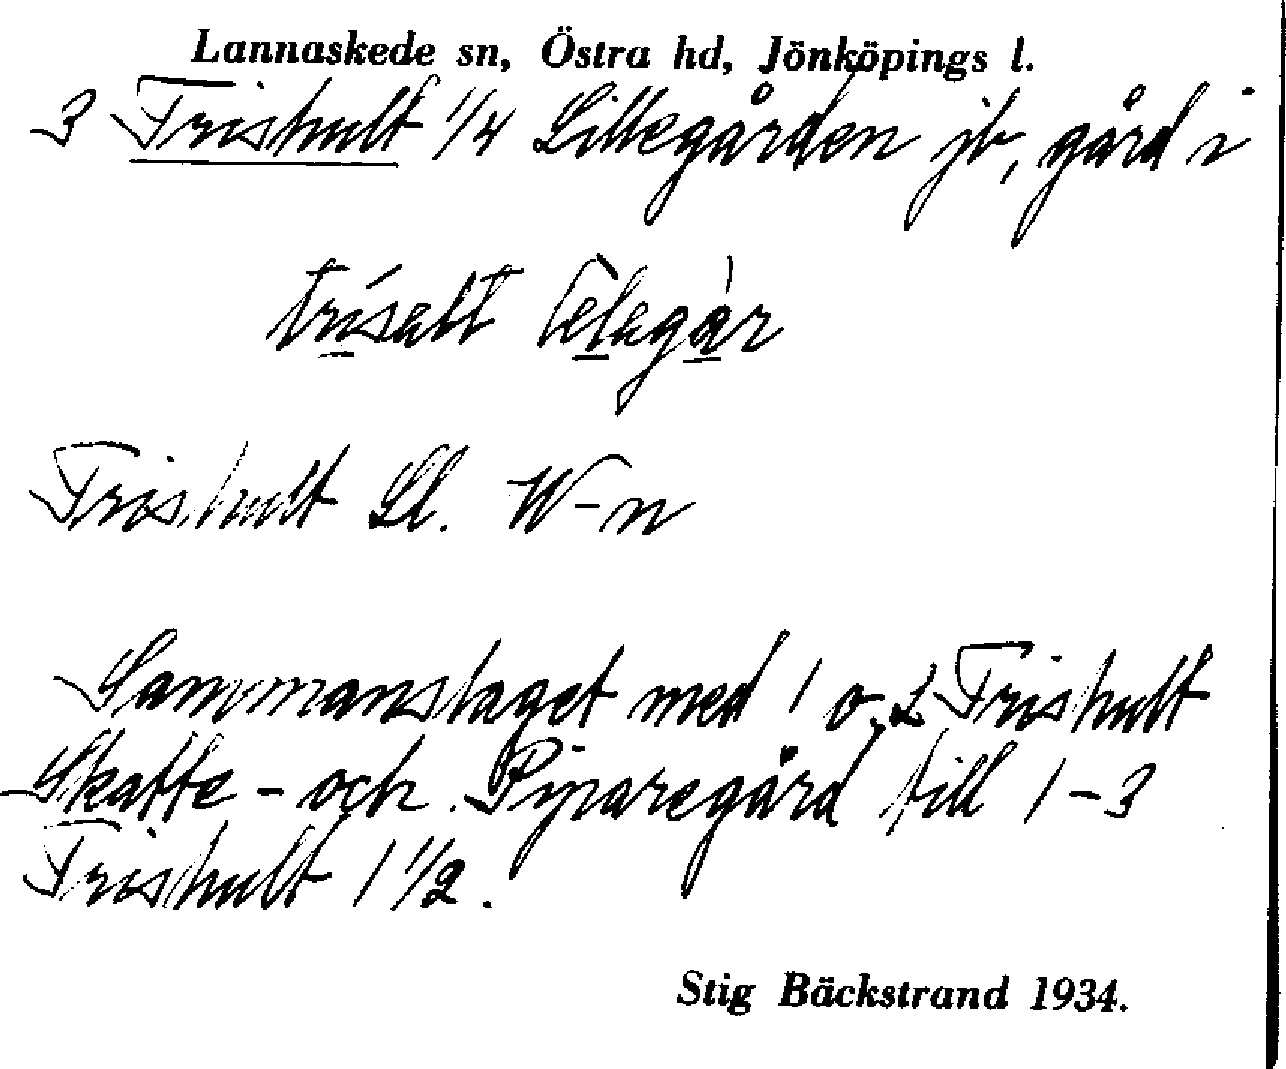 Lannaskede sn, Östra hd, Jönköpings l.
3 Trishult 1/4 Lillegården jb, gård i
Trishult Ll. W-n
Sammanslaget med 1 o. 2 Trishult
Skatte- och Piparegård till 1-3
Trishult 1 1/2.
Stig Bäckstrand 1934.